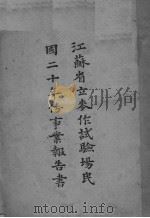 江蘇省立麥作試驗場民
國二十年份事業報告書